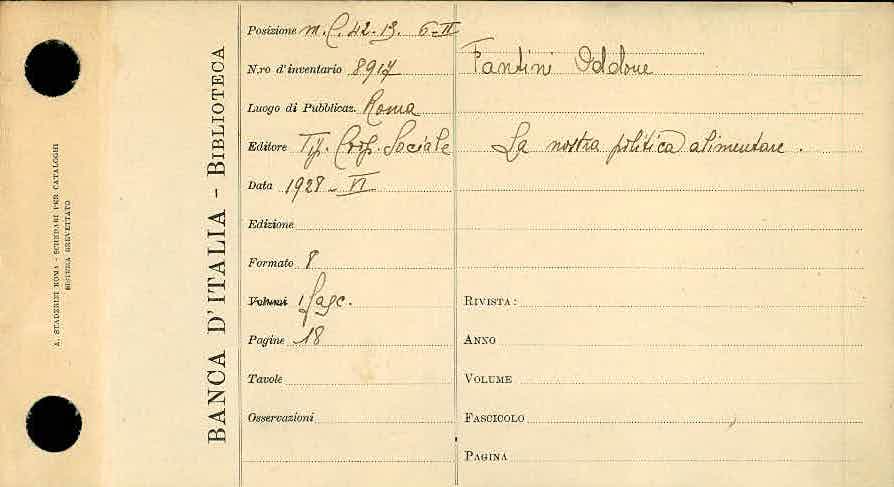 A. STADERINI ROMA - SCHEDARI PER CATALOGHI
SISTEMA BREVETTATO
BANCA D'ITALIA - BIBLIOTECA
Posizione m. C. 42-13. 6-II
N.ro d'inventario 8917
Luogo di Pubblicaz. Roma
Editore Tip. Coop. Sociale
Data 1928-VI
Edizione
Formato 8
Volumi 1 fasc.
Pagine 18
Tavole
Osservazioni
Fantini Oddone
La nostra politica alimentare.
RIVISTA:
ANNO
VOLUME
FASCICOLO
PAGINA